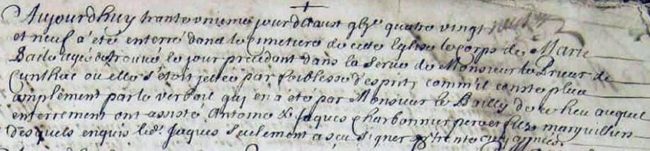 Aujourdhuy trante vnieme jour daoust gbjc quatre vingt
et neuf a été enterré dans le cimetiere de cette Eglise le corps de Marie
Baile agee de trouvé le jour precedant dans la Serve de Monsieur le Prieur de
Cunlhac ou elle s'etoit jettée par foiblesse d'esprit comm'il conste plus
amplement par le verbail qui en a eté par Monsieur le Bailly de ce lieu auquel
enterrement ont assisté Antoine & Jaques Charbonnier pere et fils marguilliers
desquels enquis led. Jaques seulement a sçu signer